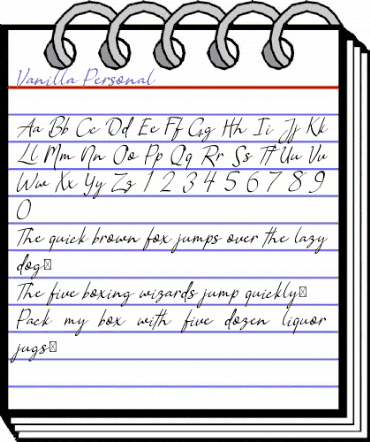 Vanilla Personal
Aa Bb Cc Dd Ee Ff Gg Hh Ii Jj Kk
Ll Mm Nn Oo Pp Qq Rr Ss Tt Uu Vv
Ww Xx Yy Zz 1 2 3 4 5 6 7 8 9
0
The quick brown fox jumps over the lazy
dog□
The five boxing wizards jump quickly□
Pack my box with five dozen liquor
jugs□